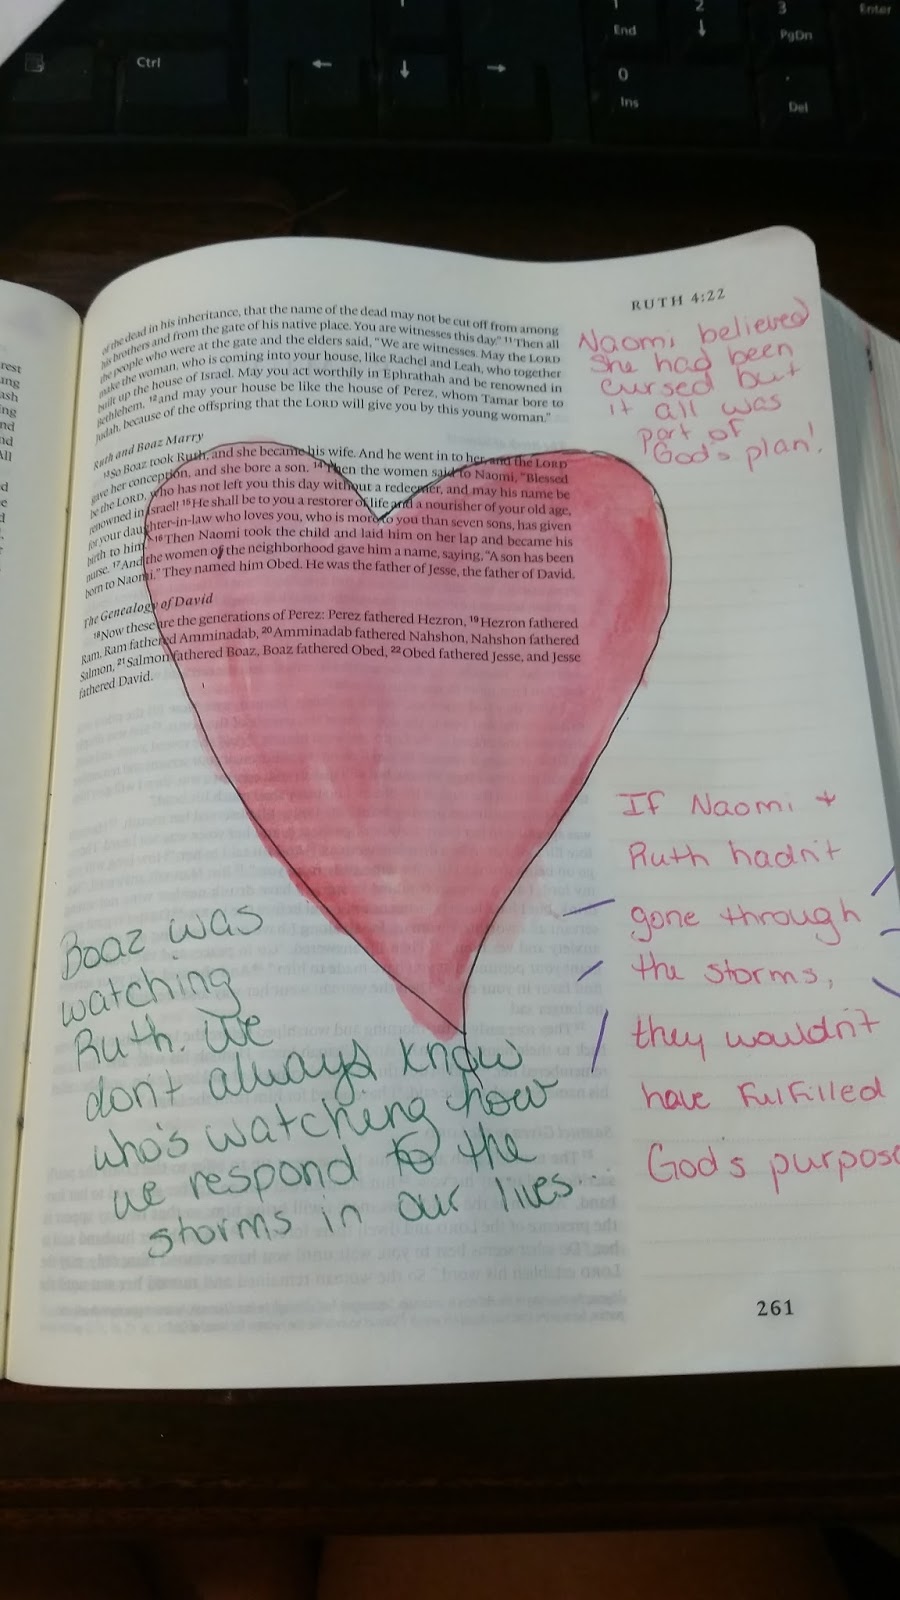 Ctrl
←
↓
→
1
End
2
↓
3
PgDn
Enter
0
Ins
.
Del
RUTH 4:22
of the dead in his inheritance, that the name of the dead may not be cut off from among
his brothers and from the gate of his native place. You are witnesses this day." 11 Then all
the people who were at the gate and the elders said, "We are witnesses. May the LORD
make the woman, who is coming into your house, like Rachel and Leah, who together
built up the house of Israel. May you act worthily in Ephrathah and be renowned in
Bethlehem, 12 and may your house be like the house of Perez, whom Tamar bore to
Judah, because of the offspring that the LORD will give you by this young woman."
Ruth and Boaz Marry
13 So Boaz took Ruth, and she became his wife. And he went in to her, and the LORD
gave her conception, and she bore a son. 14 Then the women said to Naomi, "Blessed
be the LORD, who has not left you this day without a redeemer, and may his name be
renowned in Israel! 15 He shall be to you a restorer of life and a nourisher of your old age,
for your daughter-in-law who loves you, who is more to you than seven sons, has given
birth to him." 16 Then Naomi took the child and laid him on her lap and became his
nurse. 17 And the women of the neighborhood gave him a name, saying, "A son has been
born to Naomi." They named him Obed. He was the father of Jesse, the father of David.
The Genealogy of David
18 Now these are the generations of Perez: Perez fathered Hezron, 19 Hezron fathered
Ram, Ram fathered Amminadab, 20 Amminadab fathered Nahshon, Nahshon fathered
Salmon, 21 Salmon fathered Boaz, Boaz fathered Obed, 22 Obed fathered Jesse, and Jesse
fathered David.
Naomi believed
She had been
cursed but
it all was
part of
God's plan!
If Naomi +
Ruth hadn't
gone through
the storms,
they wouldn't
have fulfilled
God's purpose
Boaz was
watching
Ruth. We
don't always know
who's watching how
we respond to the
storms in our lives...
261